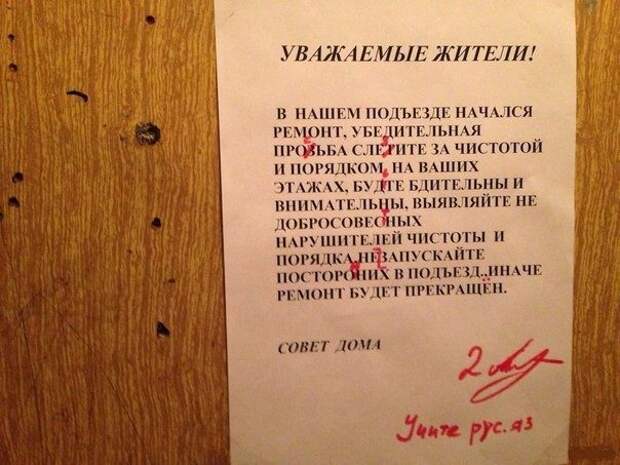 УВАЖАЕМЫЕ ЖИТЕЛИ!
В НАШЕМ ПОДЪЕЗДЕ НАЧАЛСЯ
РЕМОНТ, УБЕДИТЕЛЬНАЯ
ПРОЗЬБА СЛЕТИТЕ ЗА ЧИСТОТОЙ
И ПОРЯДКОМ НА ВАШИХ
ЭТАЖАХ, БУДТЕ БДИТЕЛЬНЫ И
ВНИМАТЕЛЬНЫ, ВЫЯВЛЯЙТЕ НЕ
ДОБРОСОВЕСНЫХ
НАРУШИТЕЛЕЙ ЧИСТОТЫ И
ПОРЯДКА,НЕЗАПУСКАЙТЕ
ПОСТОРОНИХ В ПОДЪЕЗД..ИНАЧЕ
РЕМОНТ БУДЕТ ПРЕКРАЩЁН.
СОВЕТ ДОМА
2
Учите рус.яз